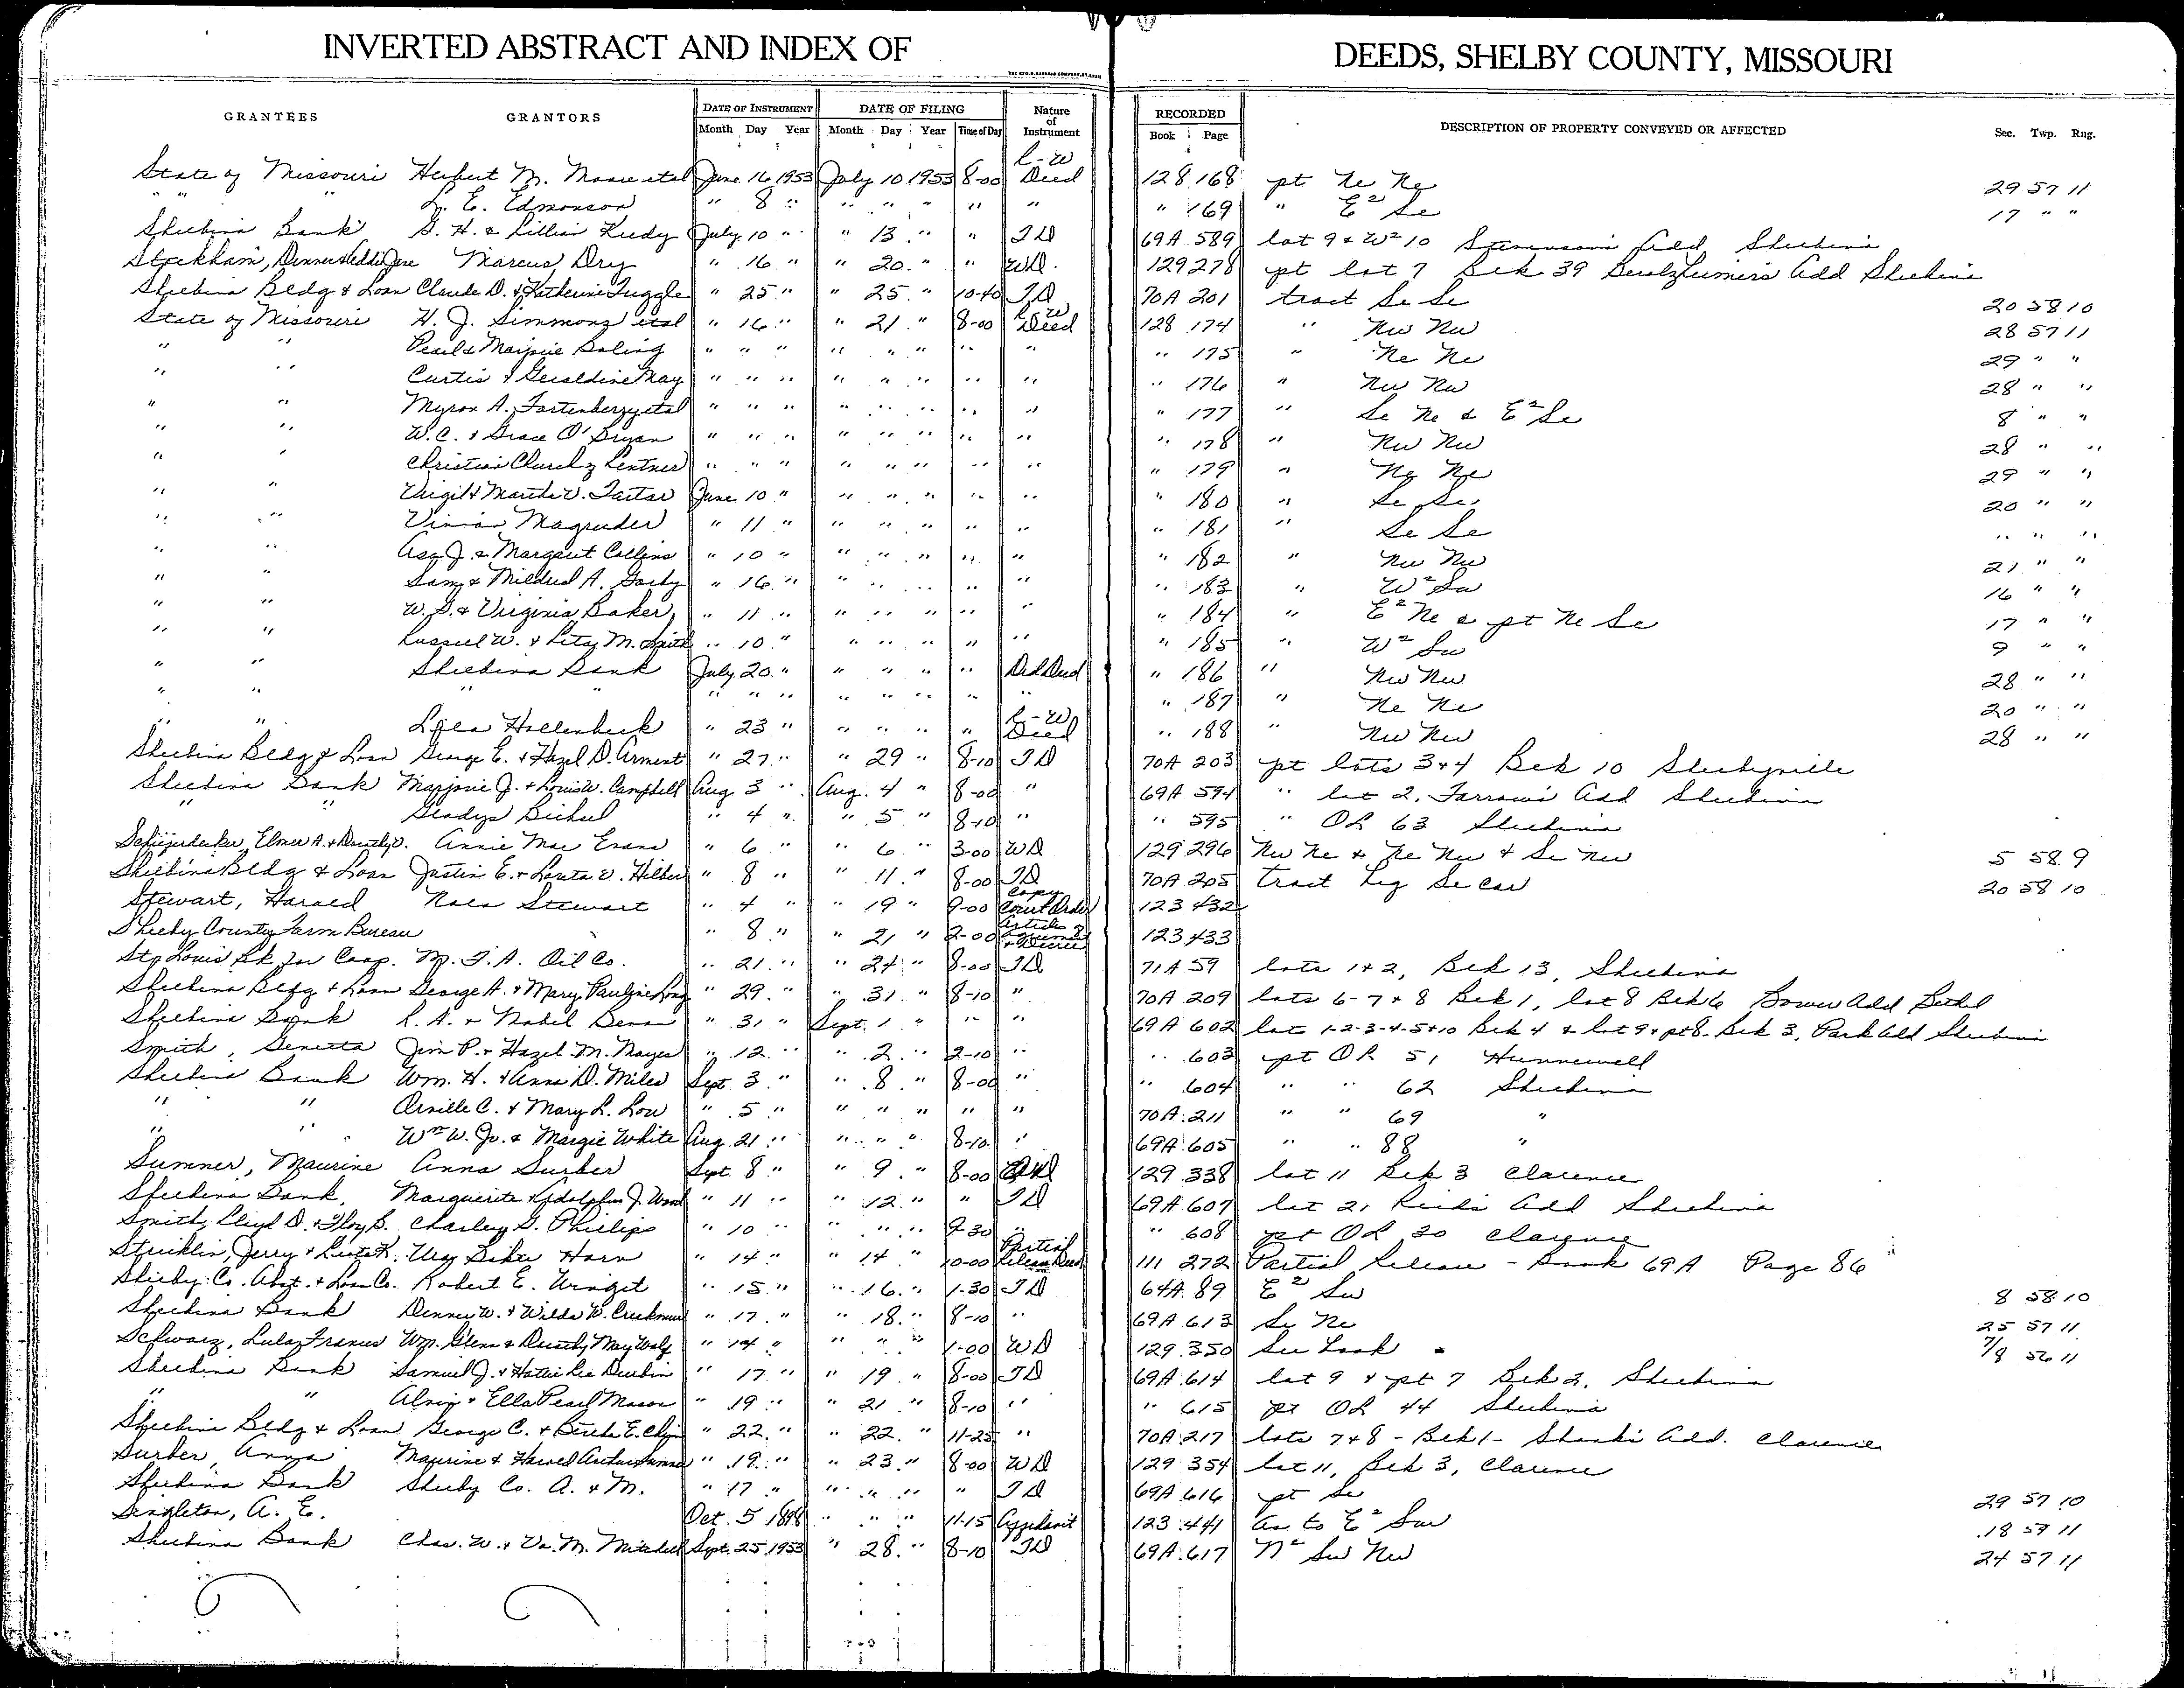 INVERTED ABSTRACT AND INDEX OF DEEDS, SHELBY COUNTY, MISSOURI
GRANTEES GRANTORS DATE OF INSTRUMENT DATE OF FILING Nature of Instrument RECORDED DESCRIPTION OF PROPERTY CONVEYED OR AFFECTED Sec. Twp. Rng.
Month Day Year Month Day Year Time of Day Book Page
State of Missouri Herbert M. Moore etal June 16 1953 July 10 1953 8-00 C-W Deed 128 168 pt Ne Ne 29 57 11
" " L. E. Edmonson " 8 " " " " " " " 169 " E² Se 17 " "
Shelbina Bank S. H. & Lillian Keedy July 10 " " 13 " " TD 69A 589 lot 9 & W² 10 Stevenson's Add Shelbina
Stockham, Marcus Dry " 16 " " 20 " " WD. 129 278 pt lot 7 Blk 39 Add Shelbina
Shelbina Bldg & Loan Claude D. & Katherine Tuggle " 25 " " 25 " 10-40 TD 70A 201 tract Se Se 20 58 10
State of Missouri H. J. Simmons etal " 16 " " 21 " 8-00 C-W Deed 128 174 " Nw Nw 28 57 11
" " Pearl & Marjorie Boling " " " " " " " " " 175 " Ne Ne 29 " "
" " Curtis & Geraldine May " " " " " " " " " 176 " Nw Nw 28 " "
" " Myron A. etal " " " " " " " " " 177 " Se Ne & E² Se 8 " "
" " W. C. & Grace O'Bryan " " " " " " " " " 178 " Nw Nw 28 " "
" " Christian Church of Lentner " " " " " " " " " 179 " Ne Ne 29 " "
" " Virgil & Martha V. Tartar June 10 " " " " " " " 180 " Se Se 20 " "
" " Vivian Magruder " 11 " " " " " " " 181 " Se Se " " "
" " Asa J. & Margaret Collins " 10 " " " " " " " 182 " Nw Nw 21 " "
" " Sam & Mildred A. Gorby " 16 " " " " " " " 183 " W² Sw 16 " "
" " W. S. & Virginia Baker " 11 " " " " " " " 184 " E² Ne & pt Ne Se 17 " "
" " Russell W. & Leta M. Smith " 10 " " " " " " " 185 " W² Sw 9 " "
" " Shelbina Bank July 20 " " " " " Ded Deed " 186 " Nw Nw 28 " "
" " " " " " " " " " " " " 187 " Ne Ne 20 " "
" " Lola Hollenbeck " 23 " " " " " C-W Deed " 188 " Nw Nw 28 " "
Shelbina Bldg & Loan George E. & Hazel D. Arment " 27 " " 29 " 8-10 TD 70A 203 pt lots 3 & 4 Blk 10 Shelbyville
Shelbina Bank Marjorie J. & Louis W. Campbell Aug 3 " Aug. 4 " 8-00 " 69A 594 " lot 2, Farrow's Add Shelbina
" " Gladys Bichel " 4 " " 5 " 8-10 " " 595 " OL 63 Shelbina
Elmer A. & Dorothy V. Annie Mae Evans " 6 " " 6 " 3-00 WD 129 296 Nw Ne & Ne Nw & Se Nw 5 58 9
Shelbina Bldg & Loan Justin E. & Louta V. Hilber " 8 " " 11 " 8-00 TD 70A 205 tract beg Se cor 20 58 10
Stewart, Harold Nola Stewart " 4 " " 19 " 9-00 Copy Court Order 123 432
Shelby County Farm Bureau " 8 " " 21 " 2-00 Articles of Agreement & Decree 123 433
St. Louis Bk for Coop. M. F. A. Oil Co. " 21 " " 24 " 8-00 TD 71A 59 lots 1 & 2, Blk 13, Shelbina
Shelbina Bldg & Loan George A. & Mary Pauline Long " 29 " " 31 " 8-10 " 70A 209 lots 6-7 & 8 Blk 1, lot 8 Blk 6 Bower Add Bethel
Shelbina Bank R. A. & Mabel Bevan " 31 " Sept. 1 " " " 69A 602 lots 1-2-3-4-5 & 10 Blk 4 & lot 9 & pt 8 Blk 3, Park Add Shelbina
Smith, Genetta Jim P. & Hazel M. Mayes " 12 " " 2 " 2-10 " " 603 pt OL 51 Hunnewell
Shelbina Bank Wm. H. & Anna D. Miles Sept 3 " " 8 " 8-00 " " 604 " " 62 Shelbina
" " Orville C. & Mary L. Low " 5 " " " " " " 70A 211 " " 69 "
" " Wm W. Jr. & Margie White Aug. 21 " " " " 8-10 " 69A 605 " " 88 "
Sumner, Maurine Anna Surber Sept. 8 " " 9 " 8-00 129 338 lot 11 Blk 3 Clarence
Shelbina Bank Marguerite & Adolphus J. Wood " 11 " " 12 " " TD 69A 607 lot 2, Add Shelbina
Smith, Lloyd D. & Floy B. Charley G. Phillips " 10 " " " " 9 30 " " 608 pt OL 20 Clarence
Stricklin, Jerry & Baker Horn " 14 " " 14 " 10-00 Partial Release Deed 111 272 Partial Release - Book 69A Page 86
Shelby Co. Abst. & Loan Co. Robert E. Winget " 15 " " 16 " 1-30 TD 64A 89 E² Sw 8 58 10
Shelbina Bank Dennis W. & Wilda W. Creekmur " 17 " " 18 " 8-10 " 69A 613 Se Ne 25 57 11
Schwarz, Lula Frances Wm. Glenn & Dorothy May Wolf " 14 " " " " 1-00 WD 129 350 See Book 7/8 56 11
Shelbina Bank Samuel J. & Hattie Lee Durbin " 17 " " 19 " 8-00 TD 69A 614 lot 9 & pt 7 Blk 2, Shelbina
" " Alvin & Ella Pearl Mason " 19 " " 21 " 8-10 " " 615 pt OL 44 Shelbina
Shelbina Bldg & Loan George C. & Bertha E. " 22 " " 22 " 11-25 " 70A 217 lots 7 & 8 - Blk 1 - Shanks Add. Clarence
Surber, Anna Maurine & Harold Arthur Sumner " 19 " " 23 " 8-00 WD 129 354 lot 11, Blk 3, Clarence
Shelbina Bank Shelby Co. A. & M. " 17 " " " " " TD 69A 616 pt Se 29 57 10
Singleton, A. E. Oct. 5 1898 " " " 11-15 Affidavit 123 441 as to E² Sw 18 57 11
Shelbina Bank Chas. W. & Va. M. Mitchell Sept. 25 1953 " 28 " 8-10 TD 69A 617 N² Sw Nw 24 57 11